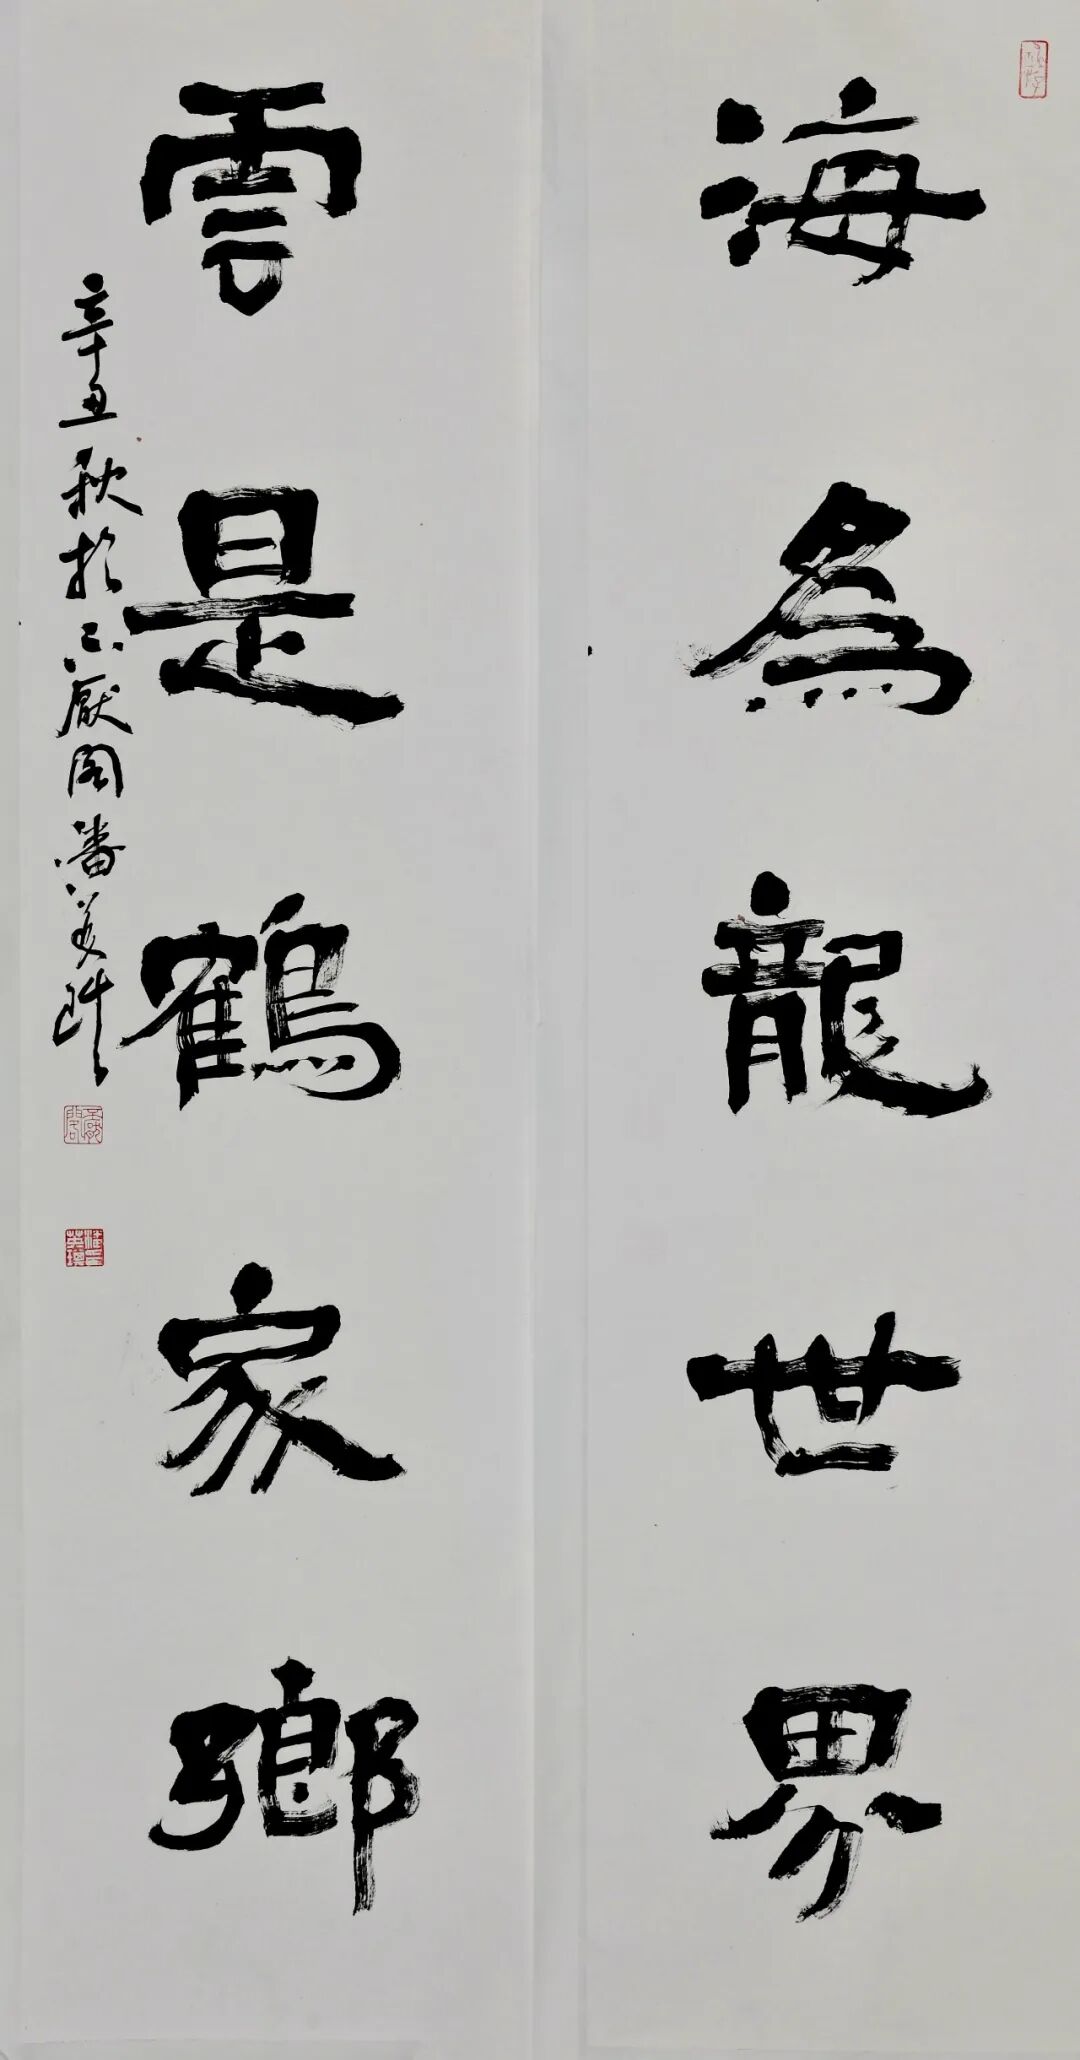 海為龍世界
雲是鶴家鄉
辛丑秋於不厭閣潘英琪